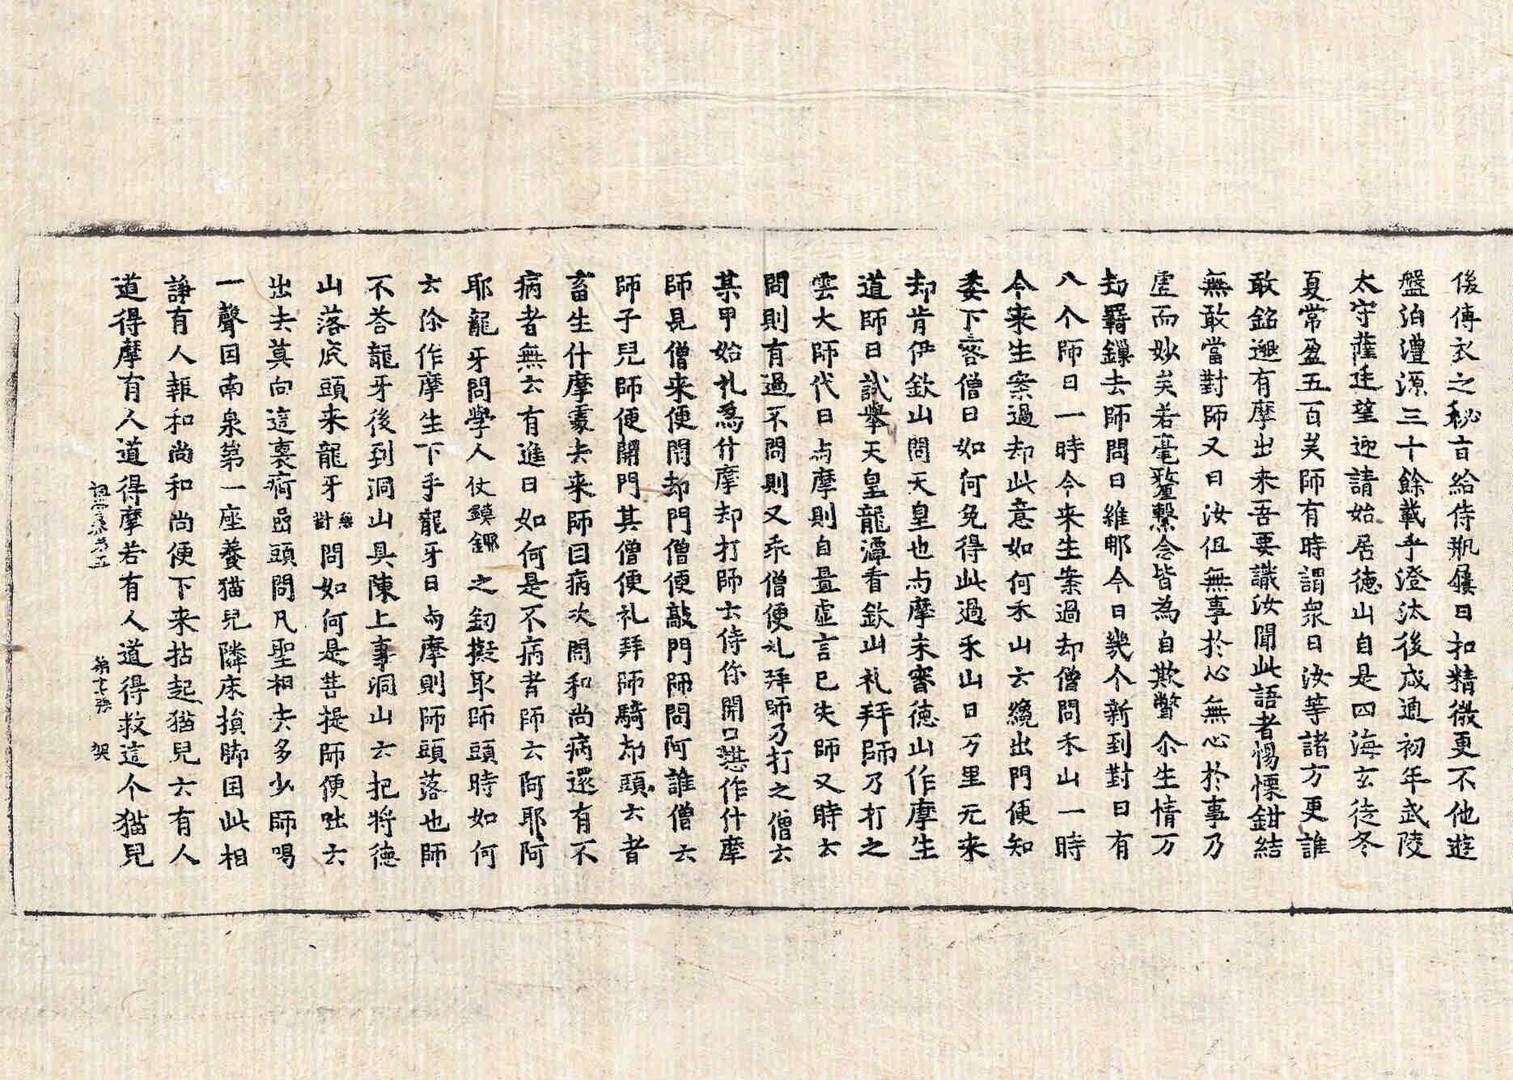 後傳衣之秘旨給侍瓶屨日扣精微更不他遊
盤泊澧源三十餘載乎澄汰後咸通初年武陵
太守薩廷望迎請始居德山自是四海玄徒冬
夏常盈五百矣師有時謂衆曰汝等諸方更誰
敢銘邈有摩出來吾要識汝聞此語者惕慄鉗結
無敢當對師又曰汝但無事於心無心於事乃
虛而妙矣若毫氂繫念皆為自欺瞥尒生情万
劫羇鏁去師問曰維那今日幾个新到對曰有
八个師曰一時今来生案過却僧問禾山一時
今来生案過却此意如何禾山云纔出門便知
委下客僧曰如何免得此過禾山曰万里无来
却肯伊欽山問天皇也与摩未審德山作摩生
道師曰試舉天皇龍潭看欽山礼拜師乃打之
雲大師代曰与摩則自曇虛言已失師又時云
問則有過不問則又乖僧便礼拜師乃打之僧云
某甲始礼爲什摩却打師云待你開口堪作什摩
師見僧来便閇却門僧便敲門師問阿誰僧云
師子兒師便開門其僧便礼拜師騎却頭云者
畜生什摩處去来師因病次問和尚病還有不
病者無云有進曰如何是不病者師云阿耶阿
耶龍牙問學人仗鏌鎁之釰擬取師頭時如何
云你作摩生下手龍牙曰与摩則師頭落也師
不荅龍牙後到洞山具陳上事洞山云把將德
山落底頭来龍牙無對問如何是菩提師便咄云
出去莫向這裏痾嵒頭問凡聖相去多少師喝
一聲因南泉第一座養猫兒隣床損脚因此相
諍有人報和尚和尚便下来拈起猫兒云有人
道得摩有人道得摩若有人道得救這个猫兒
祖堂集卷五 第十七張 架